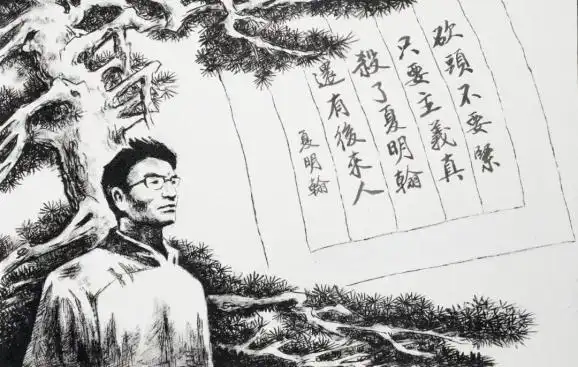 砍頭不要緊
只要主義真
殺了夏明翰
還有後來人
夏明翰